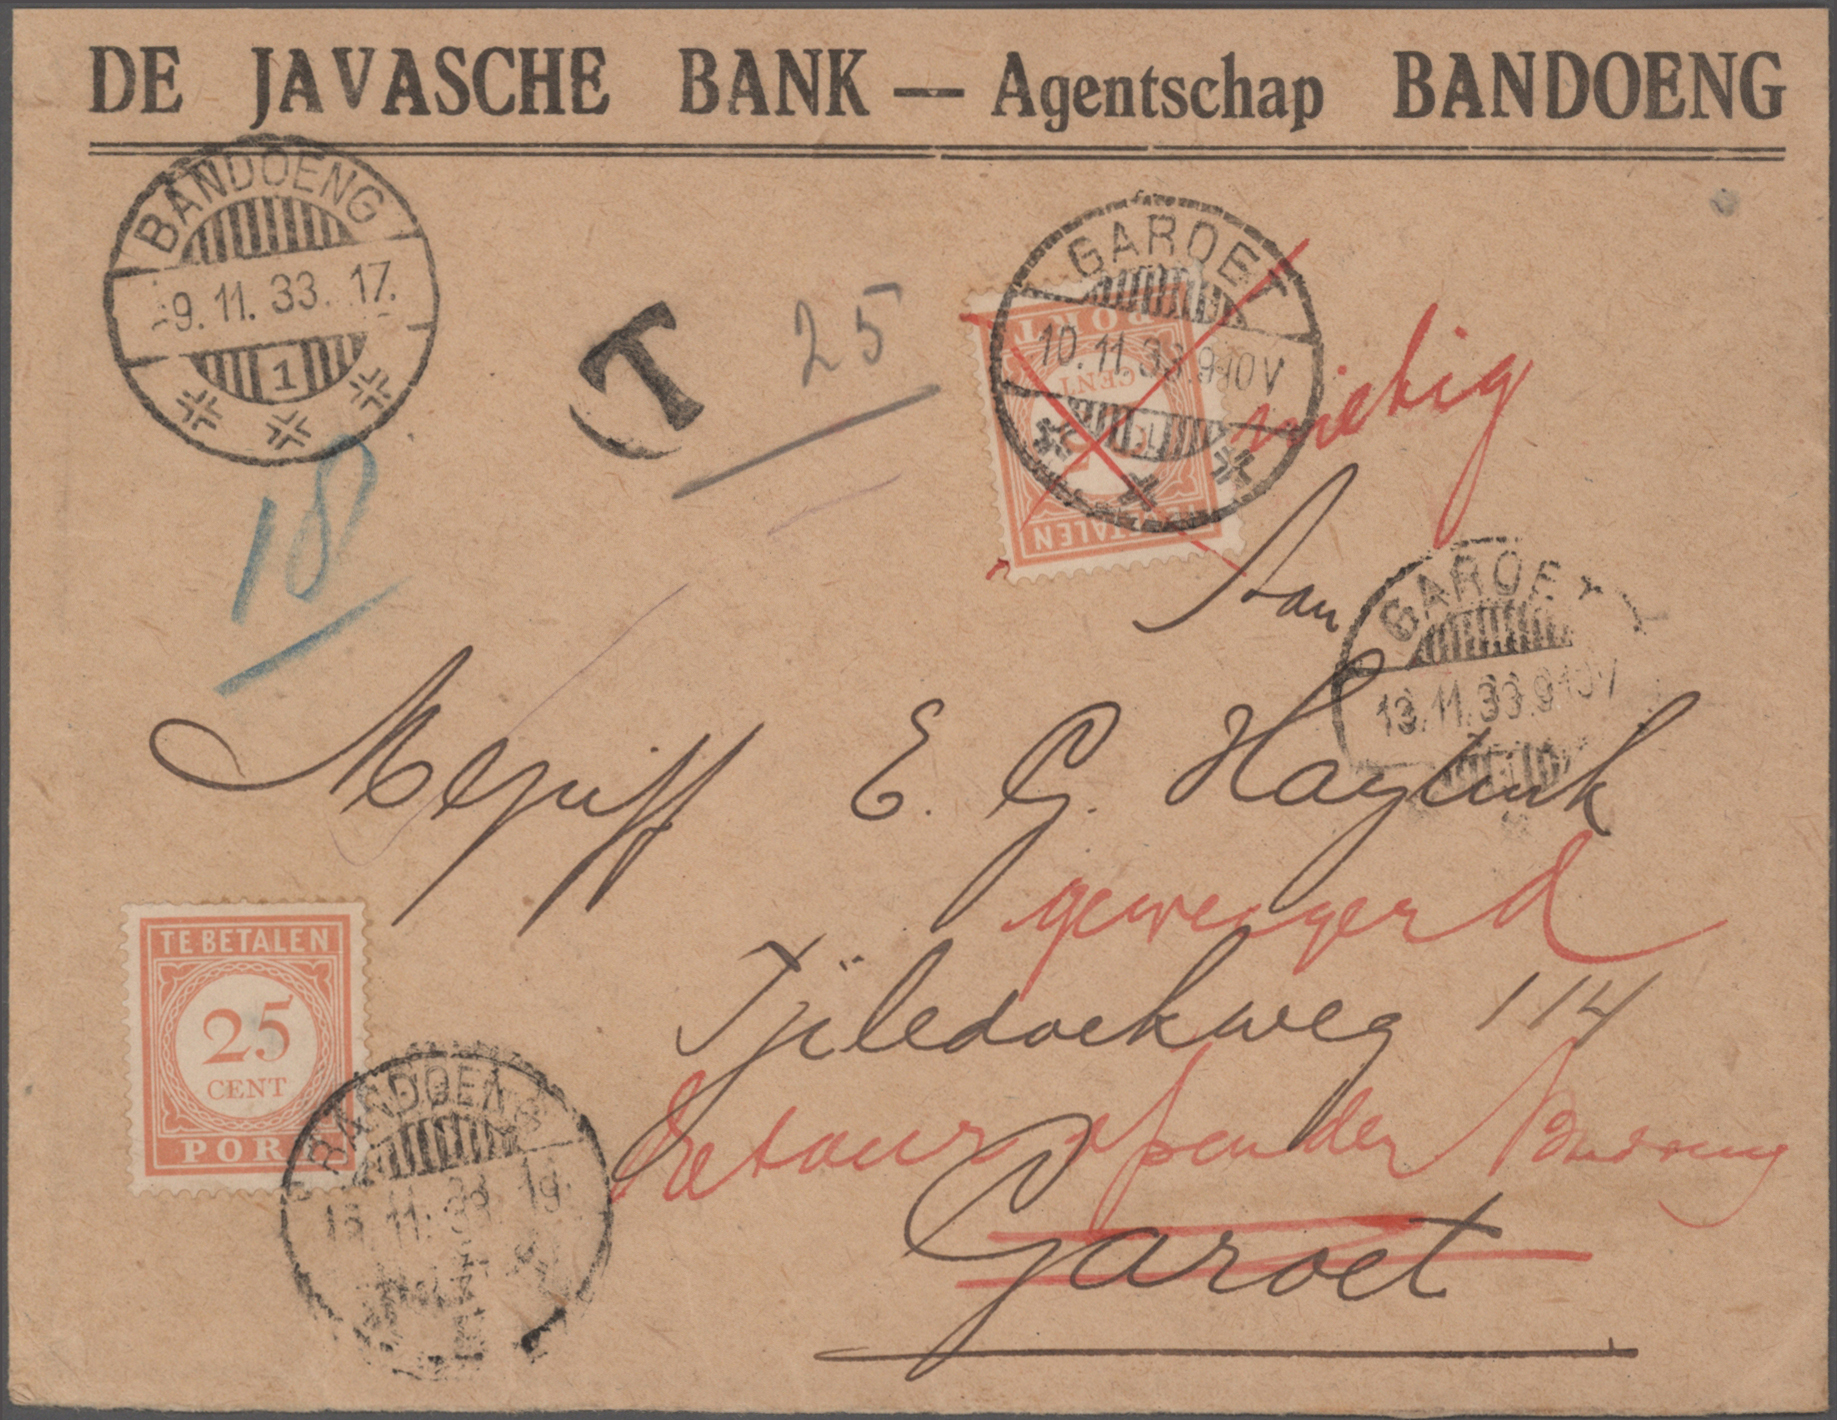 DE JAVASCHE BANK — Agentschap BANDOENG
BANDOENG
9.11.33. 17.
1
T 25
GAROET
10.11.33.9-10V
PORT
CENT
TALEN
18
Aan
GAROET
13.11.33.9-10V
1
Mejuff E. G. Haytink
geweigerd
Tjiledoekweg 114
Retour afzender Bandoeng
Garoet
TE BETALEN
25
CENT
POR
BANDOENG
13.11.33. 19.